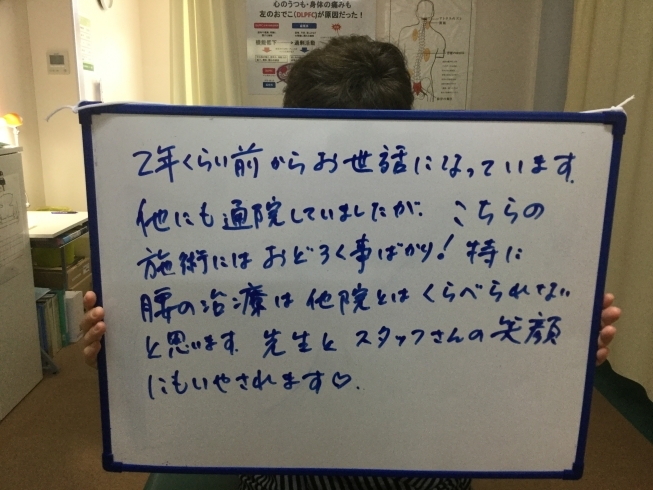 心のうつも・身体の痛みも
左のおでこ(DLPFC)が原因だった!
2年くらい前からお世話になっています.
他にも通院していましたが. こちらの
施術にはおどろく事ばかり! 特に
腰の治療は他院とはくらべられない
と思います. 先生とスタッフさんの笑顔
にもいやされます♡.